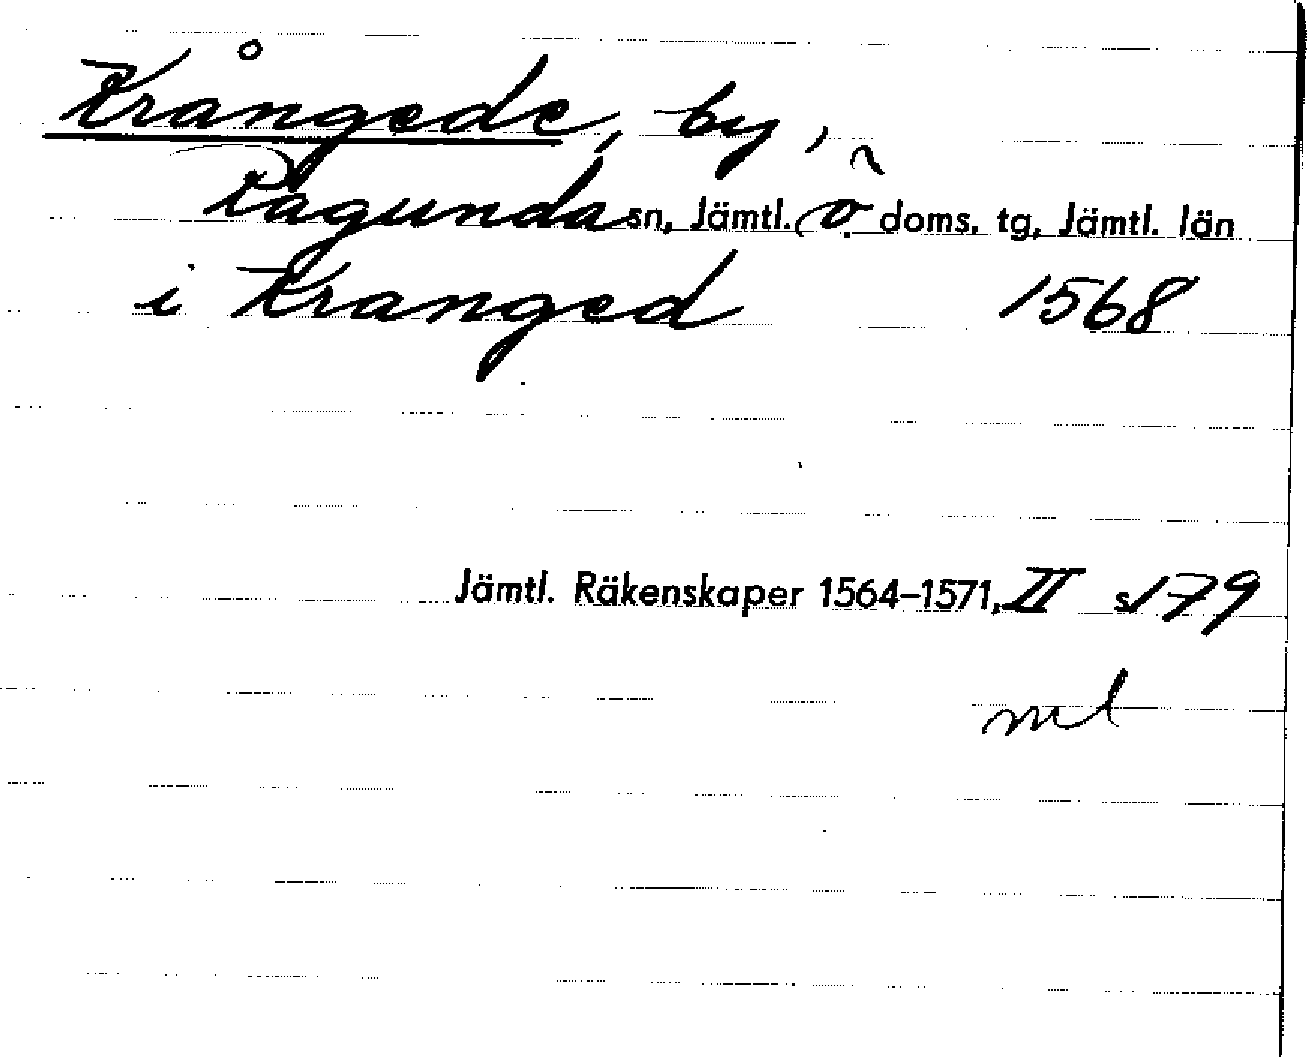 Krångede, by,
Ragunda sn, Jämtl. ö doms. tg, Jämtl. län
i Kranged 1568
Jämtl. Räkenskaper 1564–1571, II s 179